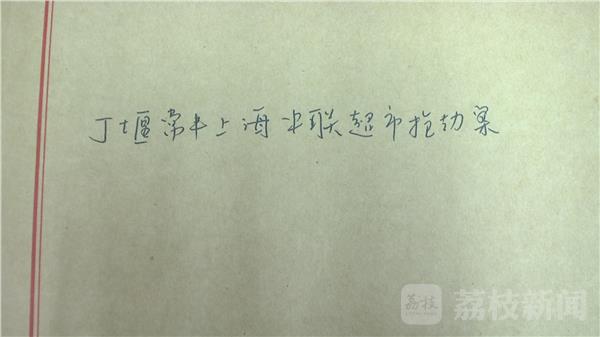 丁堰常丰上海华联超市抢劫案
荔枝
荔枝新闻